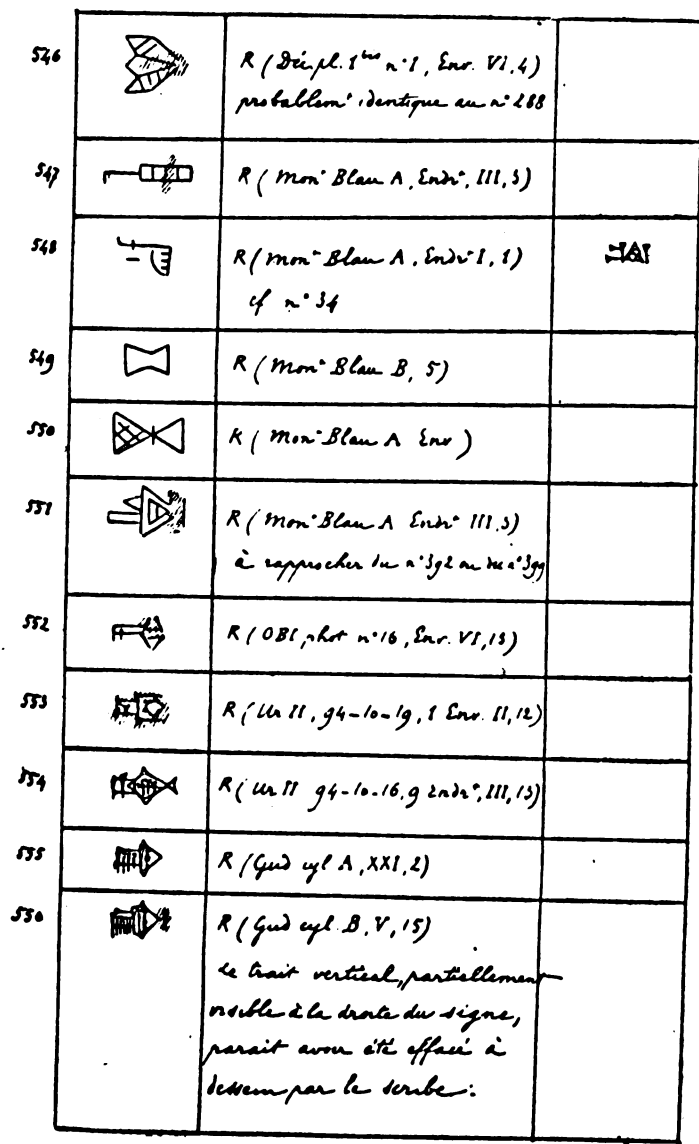 546
R (Déc. pl. 1ᵇⁱˢ n° 1, Env. VI, 4)
probablemᵗ identique au n° 288
547
R (Monᵗ Blau A, Endrᵗ, III, 3)
548
R (Monᵗ Blau A, Endrᵗ I, 1)
cf n° 34
549
R (Monᵗ Blau B, 5)
550
R (Monᵗ Blau A Env)
551
R (Monᵗ Blau A Endrᵗ III, 3)
à rapprocher du n° 392 ou du n° 399
552
R (OBI, phot n° 16, Env. VI, 13)
553
R (Ur II, 94-10-19, 1 Env. II, 12)
554
R (Ur II 94-10-16, 9 Endrᵗ, III, 13)
555
R (Gud cyl A, XXI, 2)
550
R (Gud cyl. B, V, 15)
Le trait vertical, partiellement
visible à la droite du signe,
parait avoir été effacé à
dessein par le scribe.